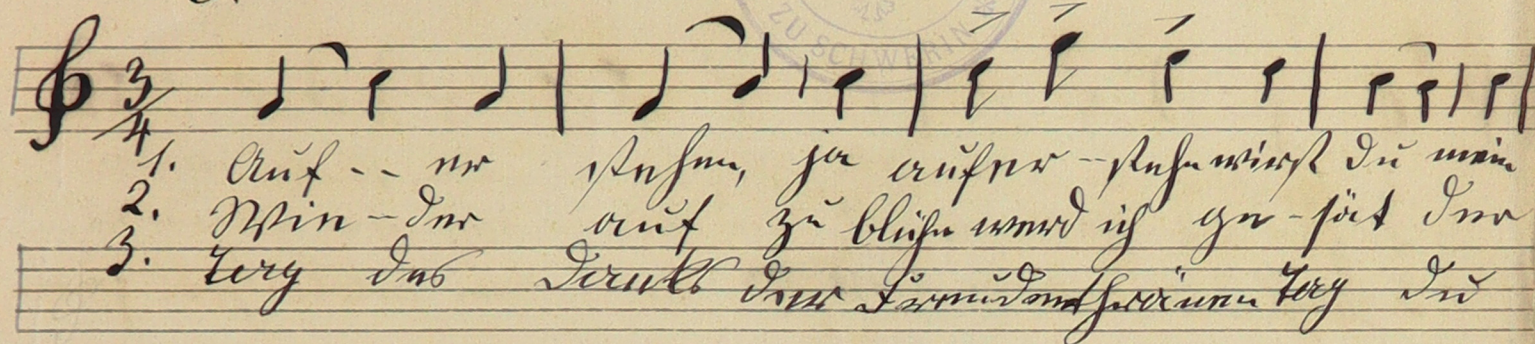 ZU SCHWERIN
3/4
1. Auf -- er stehen, ja aufer -- stehn wirst du mein
2. Wie -- der auf zu blühn werd ich ge - sät der
3. Tag des Danks der Freudenthränen Tag du